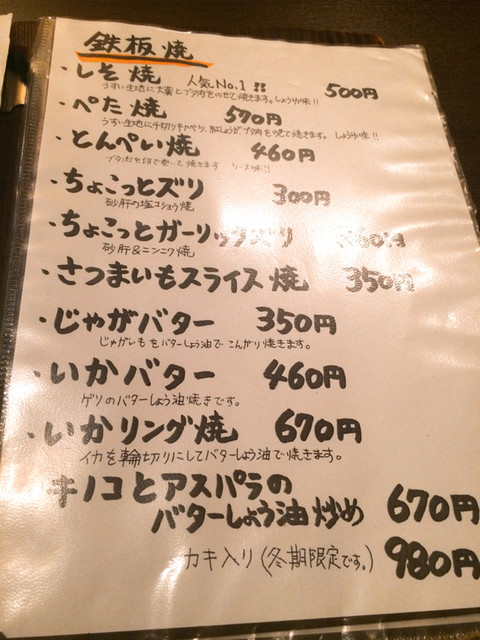 鉄板焼
・しそ焼 人気No.1!! 500円
うすい生地に大葉とブタ肉をのせて焼きます。しょうゆ味!!
・ぺた焼 570円
うすい生地に千切りキャベツ、紅しょうがブタ肉をのせて焼きます。しょうゆ味!!
・とんぺい焼 460円
ブタ肉を卵で巻いて焼きます ソース味!!
・ちょこっとズリ 300円
砂肝の塩コショウ焼
・ちょこっとガーリックズリ 360円
砂肝&ニンニク焼
・さつまいもスライス焼 350円
・じゃがバター 350円
じゃがいもをバターしょう油でこんがり焼きます。
・いかバター 460円
ゲソのバターしょう油焼きです。
・いかリング焼 670円
イカを輪切りにしてバターしょう油で焼きます。
キノコとアスパラの
バターしょう油炒め 670円
カキ入り(冬期限定です。) 980円